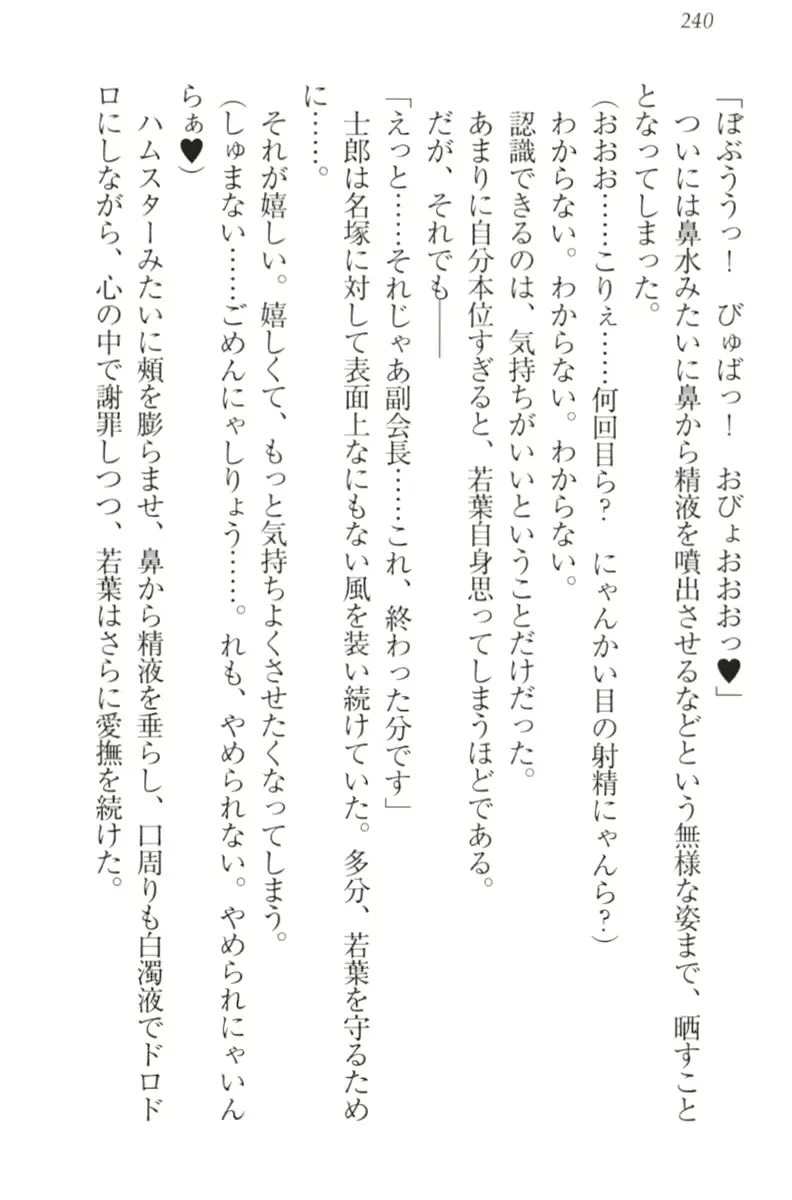 240
「ぼぶううっ！　びゅばっ！　おびょおおおっ♥」
ついには鼻水みたいに鼻から精液を噴出させるなどという無様な姿まで、晒すこと
となってしまった。
（おおお……こりぇ……何回目ら？　にゃんかい目の射精にゃんら？）
わからない。わからない。わからない。
認識できるのは、気持ちがいいということだけだった。
あまりに自分本位すぎると、若葉自身思ってしまうほどである。
だが、それでも――
「えっと……それじゃあ副会長……これ、終わった分です」
士郎は名塚に対して表面上なにもない風を装い続けていた。多分、若葉を守るため
に……。
それが嬉しい。嬉しくて、もっと気持ちよくさせたくなってしまう。
（しゅまない……ごめんにゃしりょう……。れも、やめられない。やめられにゃいん
らぁ♥）
ハムスターみたいに頰を膨らませ、鼻から精液を垂らし、口周りも白濁液でドロド
ロにしながら、心の中で謝罪しつつ、若葉はさらに愛撫を続けた。